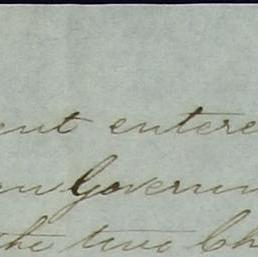 ent entere
an Governm
the two Ch